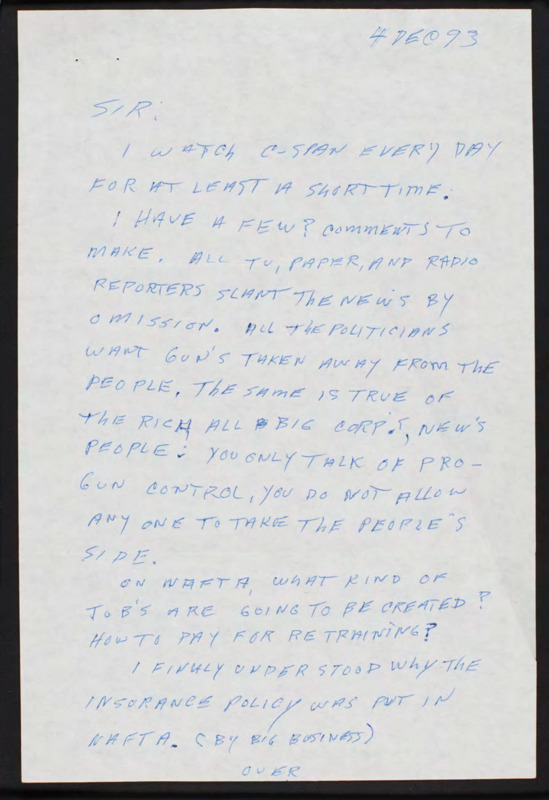 4 DEC 93
SIR:
I WATCH C-SPAN EVERY DAY
FOR AT LEAST A SHORT TIME.
I HAVE A FEW? COMMENTS TO
MAKE. ALL TV, PAPER, AND RADIO
REPORTERS SLANT THE NEWS BY
OMISSION. ALL THE POLITICIANS
WANT GUN'S TAKEN AWAY FROM THE
PEOPLE. THE SAME IS TRUE OF
THE RICH ALL BIG CORP.'S, NEW'S
PEOPLE: YOU ONLY TALK OF PRO-
GUN CONTROL, YOU DO NOT ALLOW
ANY ONE TO TAKE THE PEOPLE'S
SIDE.
ON NAFTA, WHAT KIND OF
JOB'S ARE GOING TO BE CREATED?
HOW TO PAY FOR RETRAINING?
I FINALY UNDERSTOOD WHY THE
INSURANCE POLICY WAS PUT IN
NAFTA. (BY BIG BUSINESS)
OVER